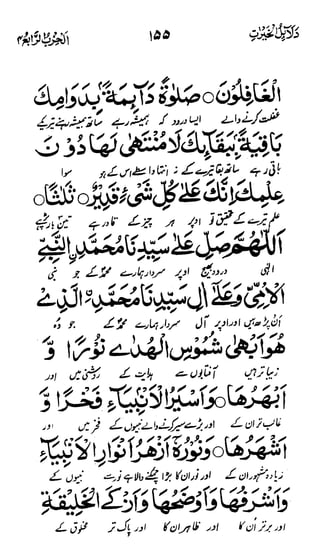 دلائل الخیرات ١٥٥ الحزب الرابع
الْغَافِلُوْنَ ○ صَلٰوةً دَآئِمَةً بِدَوَامِكَ
غفلت کرنے والے ایسا درود کہ ہمیشہ رہے ساتھ ہمیشہ رہنے تیرے کے
بَاقِيَةً بِبَقَآئِكَ لَا مُنْتَهٰى لَهَا دُوْنَ
باقی رہے ساتھ بقا تیرے کے نہ انتہا واسطے اس کے ہو سوا
عِلْمِكَ اِنَّكَ عَلٰى كُلِّ شَىْءٍ قَدِيْرٌ ○ ثَلٰثًا ○
علم تیرے کے تحقیق تو اوپر ہر چیز کے قادر ہے تین بار
اَللّٰهُمَّ صَلِّ عَلٰى سَيِّدِنَا مُحَمَّدِ ۨ النَّبِىِّ
الٰہی درود بھیج اوپر سردار ہمارے محمدؐ کے جو نبی
الْاُمِّىِّ وَعَلٰٓى اٰلِ سَيِّدِنَا مُحَمَّدِ ۨ الَّذِىْ
اَن پڑھ ہیں اور اوپر آل سردار ہمارے محمدؐ کے جو وہ
هُوَ اَبْهٰى شُمُوْسِ الْهُدٰى نُوْرًا وَّ
زیبا تر ہیں آفتابوں سے ہدایت کے روشنی میں اور
اَبْهَرُهَا وَاَسْيَرُ الْاَنْبِيَآءِ فَخْرًا وَّ
غالب تر ان کے اور بڑے سیر کرنے والے نبیوں کے فخر میں اور
اَشْهَرُهَا ○ وَنُوْرُهٗ اَزْهَرُ اَنْوَارِ الْاَنْبِيَآءِ
زیادہ مشہور ان کے اور نور ان کا بڑا چمکنے والا ہے نور سے نبیوں کے
وَاَشْرَفُهَا وَاَوْضَحُهَا وَاَزْكَى الْخَلِيْقَةِ
اور برتر ان کا اور ظاہر ان کا اور پاک تر مخلوق کے